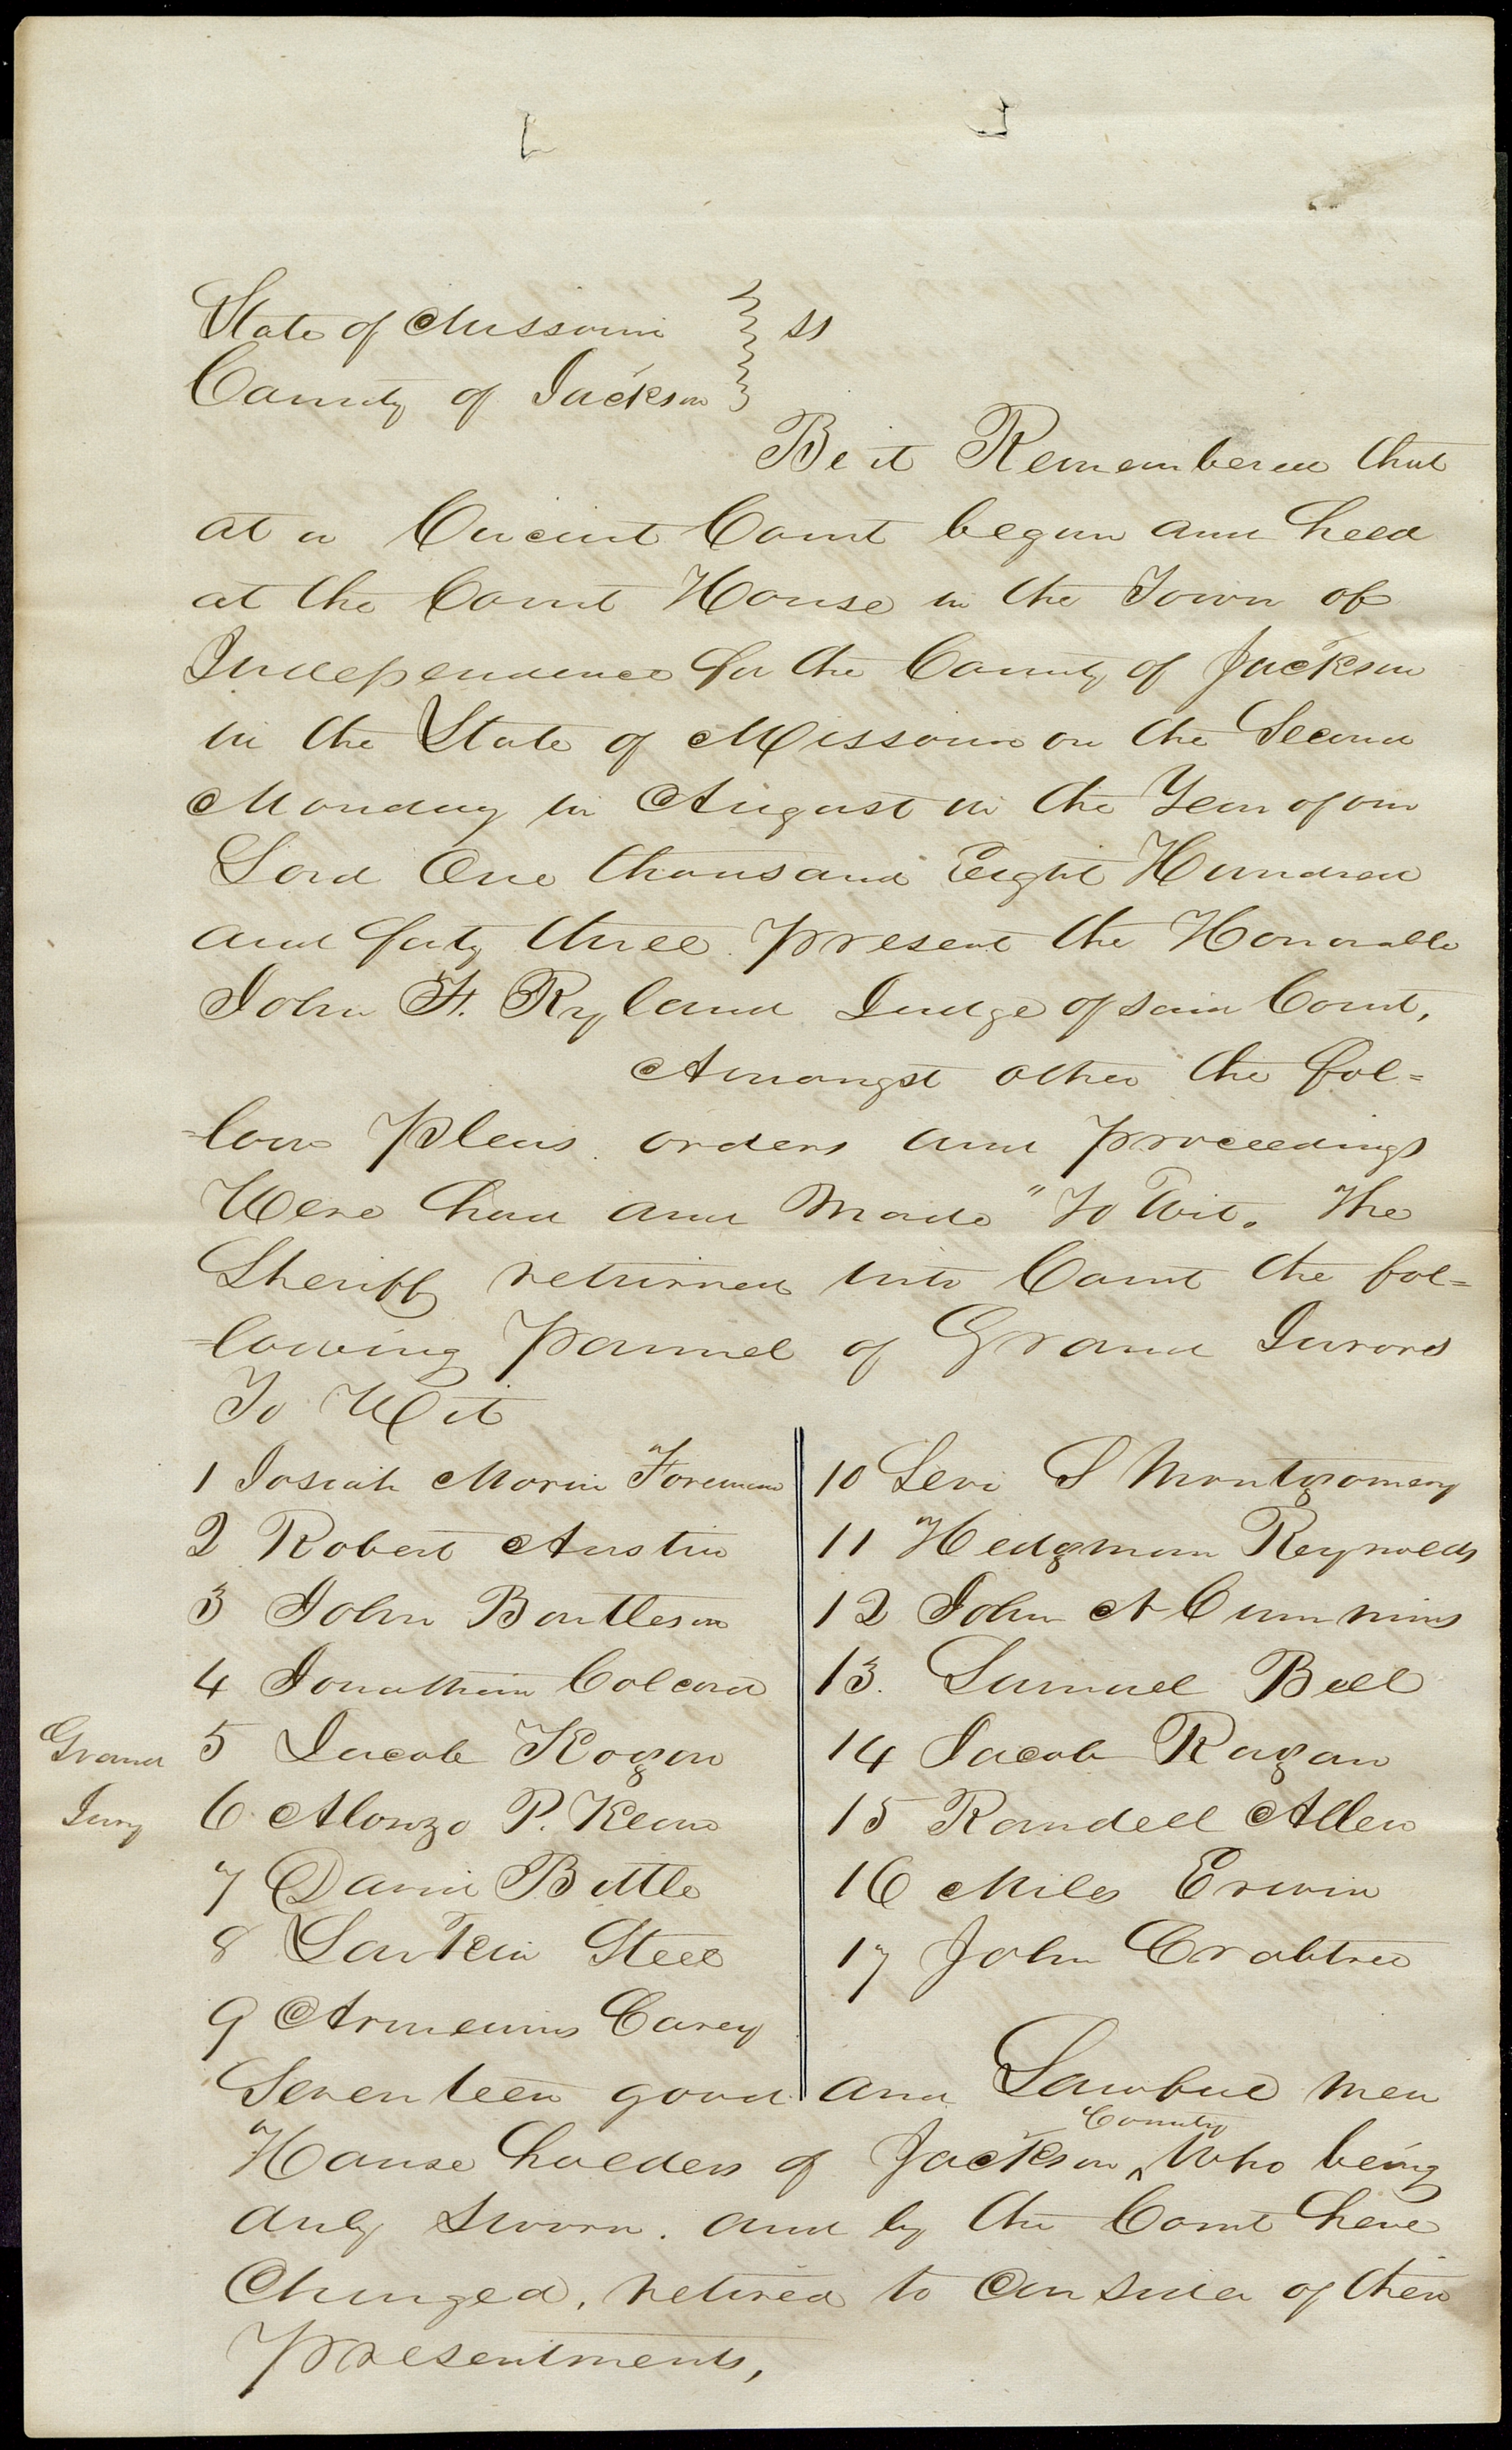 State of Missouri } ss
County of Jackson }
Be it Remembered that
at a Circuit Court begun and held
at the Court House in the Town of
Independence for the County of Jackson
in the State of Missouri on the Second
Monday in August in the Year of our
Lord One thousand Eight Hundred
and forty three. present the Honorable
John F. Ryland Judge of said Court,
Amongst other the fol=
=low Pleas. orders and proceedings
Were had and Made "To Wit. The
Sheriff returned into Court the fol=
=lowing Pannel of Grand Jurors
To Wit
1 Josiah Morin Foreman
2 Robert Austin
3 John Bartleson
4 Jonathan Colcord
Grand
5 Jacob Kogan
Jury
6. Alonzo P. Kean
7 David Bittle
8 Larkin Steel
9 Armenius Carey
10 Levi S Montgomery
11 Hedgman Reynolds
12 John A Cummins
13. Samuel Bell
14 Jacob Ragan
15 Randell Allen
16 Miles Erwin
17 John Crabtree
Seventeen good and Lawful men
House holders of Jackson County Who being
duly Sworn. and by the Court here
Charged, retired to Consider of their
Presentments,